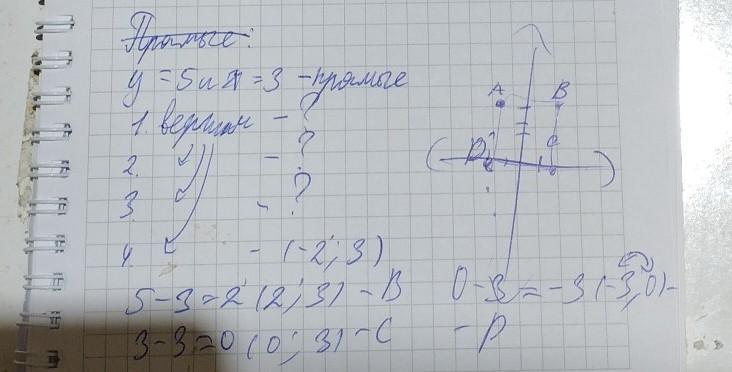 Прямые:
y = 5 и x = 3 - прямые
1. вершин - ?
2. - ?
3. - ?
4. - (-2; 3)
5-3=2 (2; 3) - B
3-3=0 (0; 3) - C
A B
D C
0-3=-3 (-3,0)-
- D